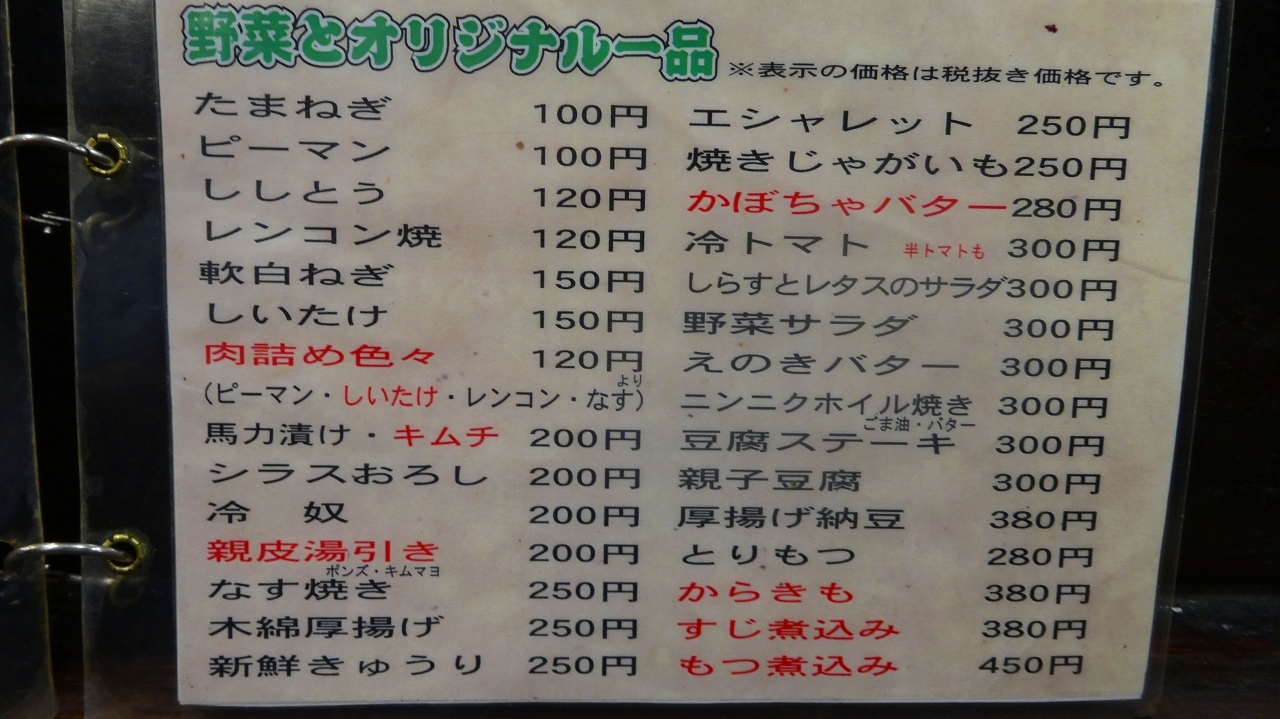 野菜とオリジナル一品
※表示の価格は税抜き価格です。
たまねぎ 100円
ピーマン 100円
ししとう 120円
レンコン焼 120円
軟白ねぎ 150円
しいたけ 150円
肉詰め色々 120円
より
(ピーマン・しいたけ・レンコン・なす)
馬力漬け・キムチ 200円
シラスおろし 200円
冷 奴 200円
親皮湯引き 200円
ポンズ・キムマヨ
なす焼き 250円
木綿厚揚げ 250円
新鮮きゅうり 250円
エシャレット 250円
焼きじゃがいも 250円
かぼちゃバター 280円
冷トマト 半トマトも 300円
しらすとレタスのサラダ 300円
野菜サラダ 300円
えのきバター 300円
ニンニクホイル焼き 300円
ごま油・バター
豆腐ステーキ 300円
親子豆腐 300円
厚揚げ納豆 380円
とりもつ 280円
からきも 380円
すじ煮込み 380円
もつ煮込み 450円